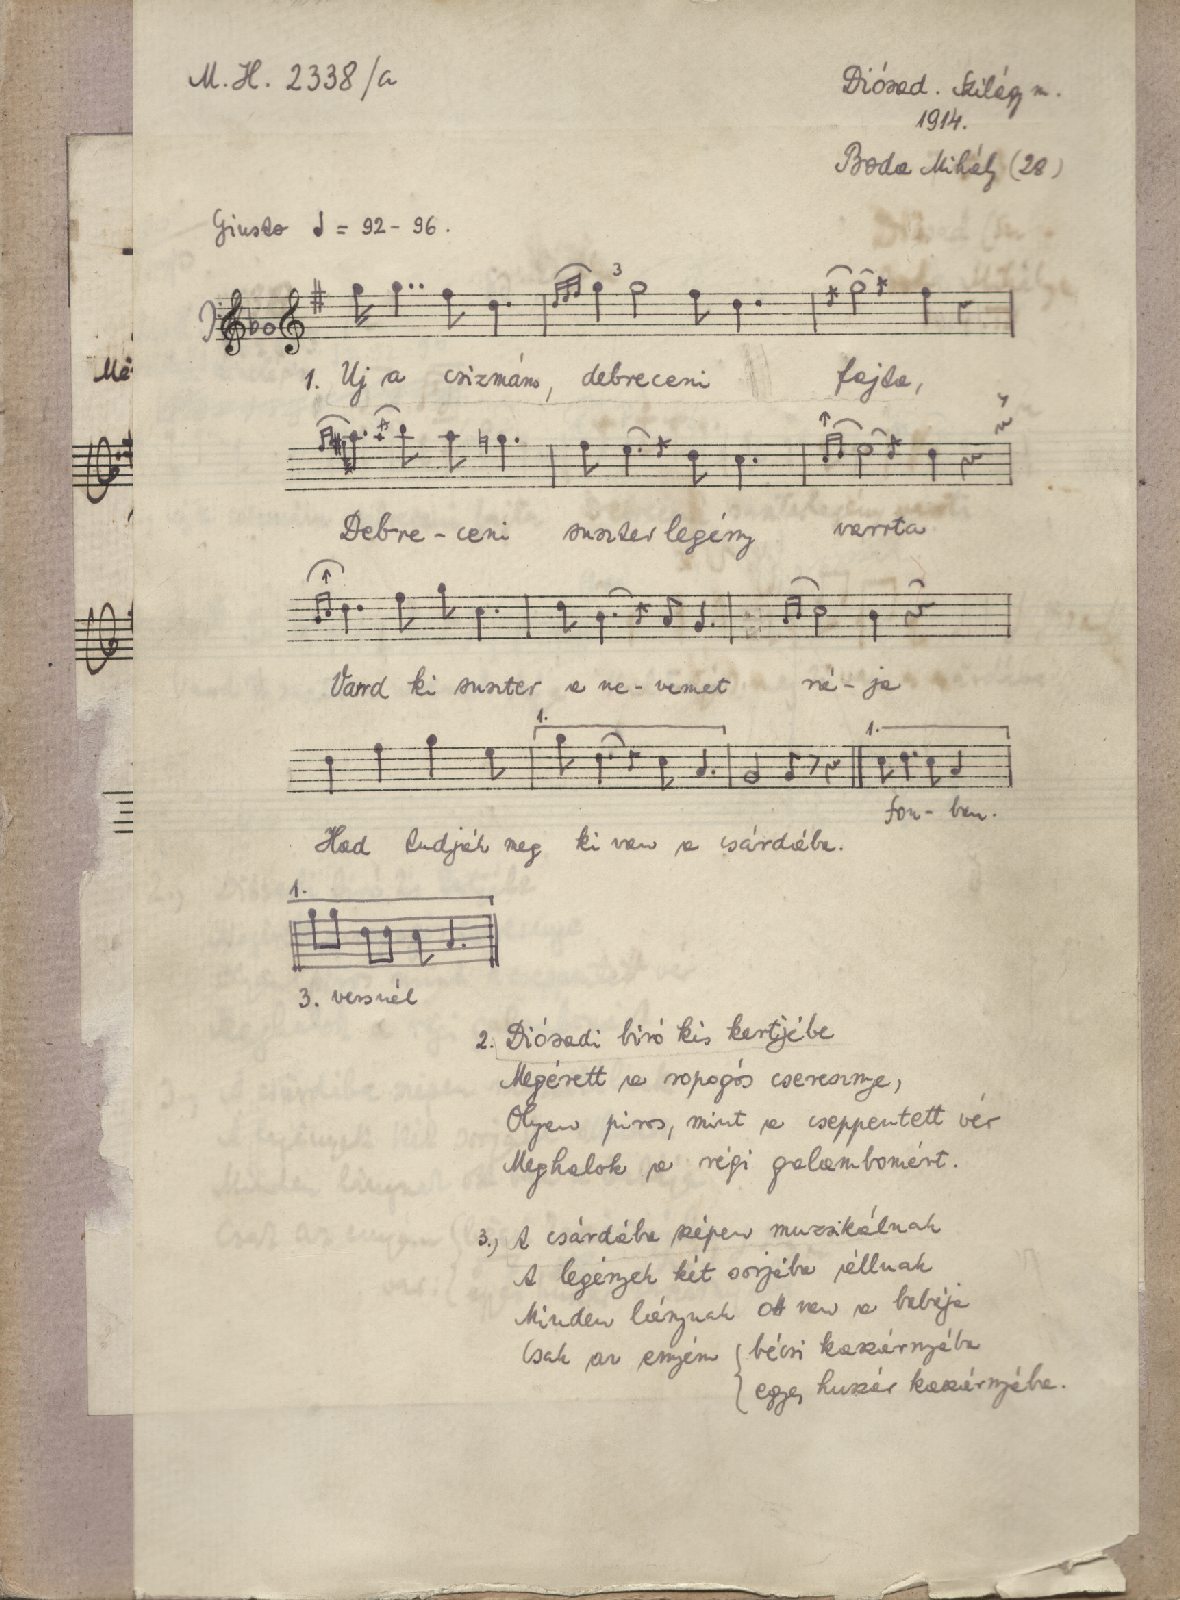 M. H. 2338/a
Diósad. Szilágy m.
1914.
Boda Mihály (28)
Giusto = 92 - 96.
3
1. Uj a csizmám, debreceni fajta,
Me
Debre - ceni suszterlegény varrta
Varrd ki suszter a ne - vemet ró - ja
1.
1.
fon - ban.
Had tudják meg ki van a csárdába.
1.
3. versnél
2. Diósadi biró kis kertjébe
Megérett a ropogós cseresznye,
Olyan piros, mint a cseppentett vér
Meghalok a régi galambomért.
3., A csárdába szépen muzsikálnak
A legények két sorjába állnak
Minden lánynak ott van a babája
Csak az enyém { bécsi kaszárnyába
egy huszár kaszárnyába.